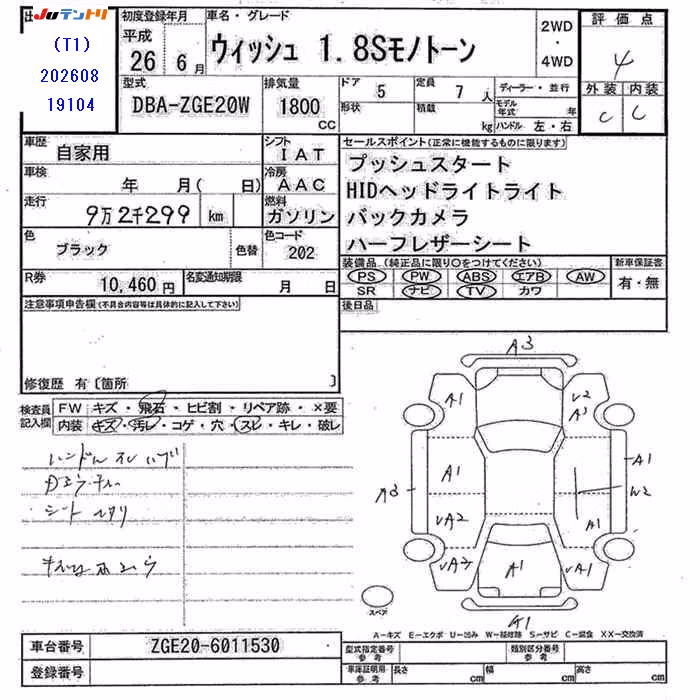 社 JUテントリ
(T1)
202608
19104
初度登録年月 車名・グレード
平成
26年 6月
ウィッシュ 1.8Sモノトーン
2WD
・
4WD
評価点
4
外装 内装
C C
型式 排気量 ドア 定員 ディーラー・並行
DBA-ZGE20W 1800 CC
5 7人
形状 積載 kg
モデル年式 年
ハンドル 左・右
車歴 自家用 シフト IAT
車検 年 月( 日) 冷房 AAC
走行 9万2千299 km 燃料 ガソリン
色 ブラック 色替 色コード 202
R券 10,460円 名変通知期限 月 日
セールスポイント(正常に機能するものに限ります)
プッシュスタート
HIDヘッドライトライト
バックカメラ
ハーフレザーシート
装備品(純正品に限り○をつけてください) 新車保証書
PS PW ABS エアB AW 有・無
SR ナビ TV カワ
後日品
注意事項申告欄(不具合内容等は具体的に記入して下さい)
修復歴 有〔箇所 〕
検査員記入欄
FW キズ・飛石・ヒビ割・リペア跡・×要
内装 キズ・汚レ・コゲ・穴・スレ・キレ・破レ
ハンドルスレ
シート
A3
A1
W2
A3
A1
A1
W2
A1
A1
A1
A1
スペア
A1
A-キズ E-エクボ U-凹み W-補修跡 S-サビ C-腐食 XX-交換済
車台番号 ZGE20-6011530
登録番号
型式指定番号 参考 類別区分番号 参考
車庫証明用 参考 長さ cm 幅 cm 高さ cm